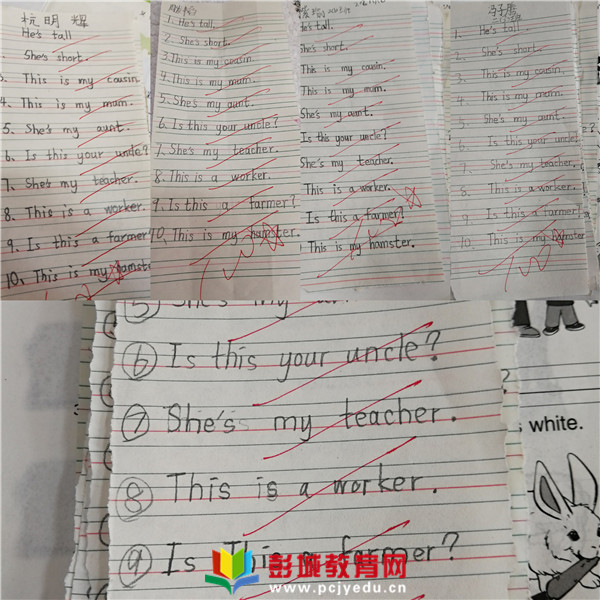 杭明辉
He's tall
She's short.
3. This is my cousin.
4. This is my mum.
5. She's my aunt.
6. Is this your uncle?
7. She's my teacher.
8. This is a worker.
9. Is this a farmer
10. This is my hamste
1. He's tall.
2. She's short.
3. This is my cousin.
4. This is my mum.
5. She's my aunt.
6. Is this your uncle?
7. She's my teacher.
8. This is a worker.
9. Is this a farmer?
10. This is my hamster.
He's tall.
She's short.
This is my cousin.
This is my mum.
She's my aunt.
Is this your uncle?
She's my teacher.
This is a worker.
Is this a farmer?
This is my hamster.
1. He's tall.
2. She's short.
3. This is my cousin.
4. This is my mum.
5. She's my aunt.
6. Is this your uncle?
7. She's my teacher.
8. This is a worker.
9. Is this a farmer?
10. This is my hamster
⑤ She's my
⑥ Is this your uncle?
⑦ She's my teacher.
⑧ This is a worker.
⑨ Is This a farmer?
white.
彭城教育网
www.pcjyedu.cn